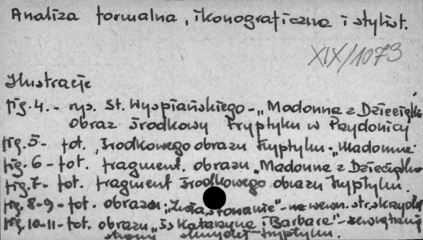 Analiza formalna, ikonograficzna i stylist.
XIX/1073
Ilustracje
fig. 4. - rys. St. Wyspiańskiego - "Madonna z Dzieciątk
obraz środkowy tryptyku w Przydonicy
fig. 5 - fot. środkowego obrazu tryptyku - "Madonna
fig. 6 - fot. fragment. obrazu "Madonna z Dzieciątk
fig. 7 - fot. fragment środkowego obrazu tryptyku.
fig. 8-9 - fot. obrazu: - na wewn. str. skrzydła
fig. 10-11 - fot. obrazu "Św. Katarzyna i Barbara" - zewnętrzny
strony skrzydeł tryptyku.